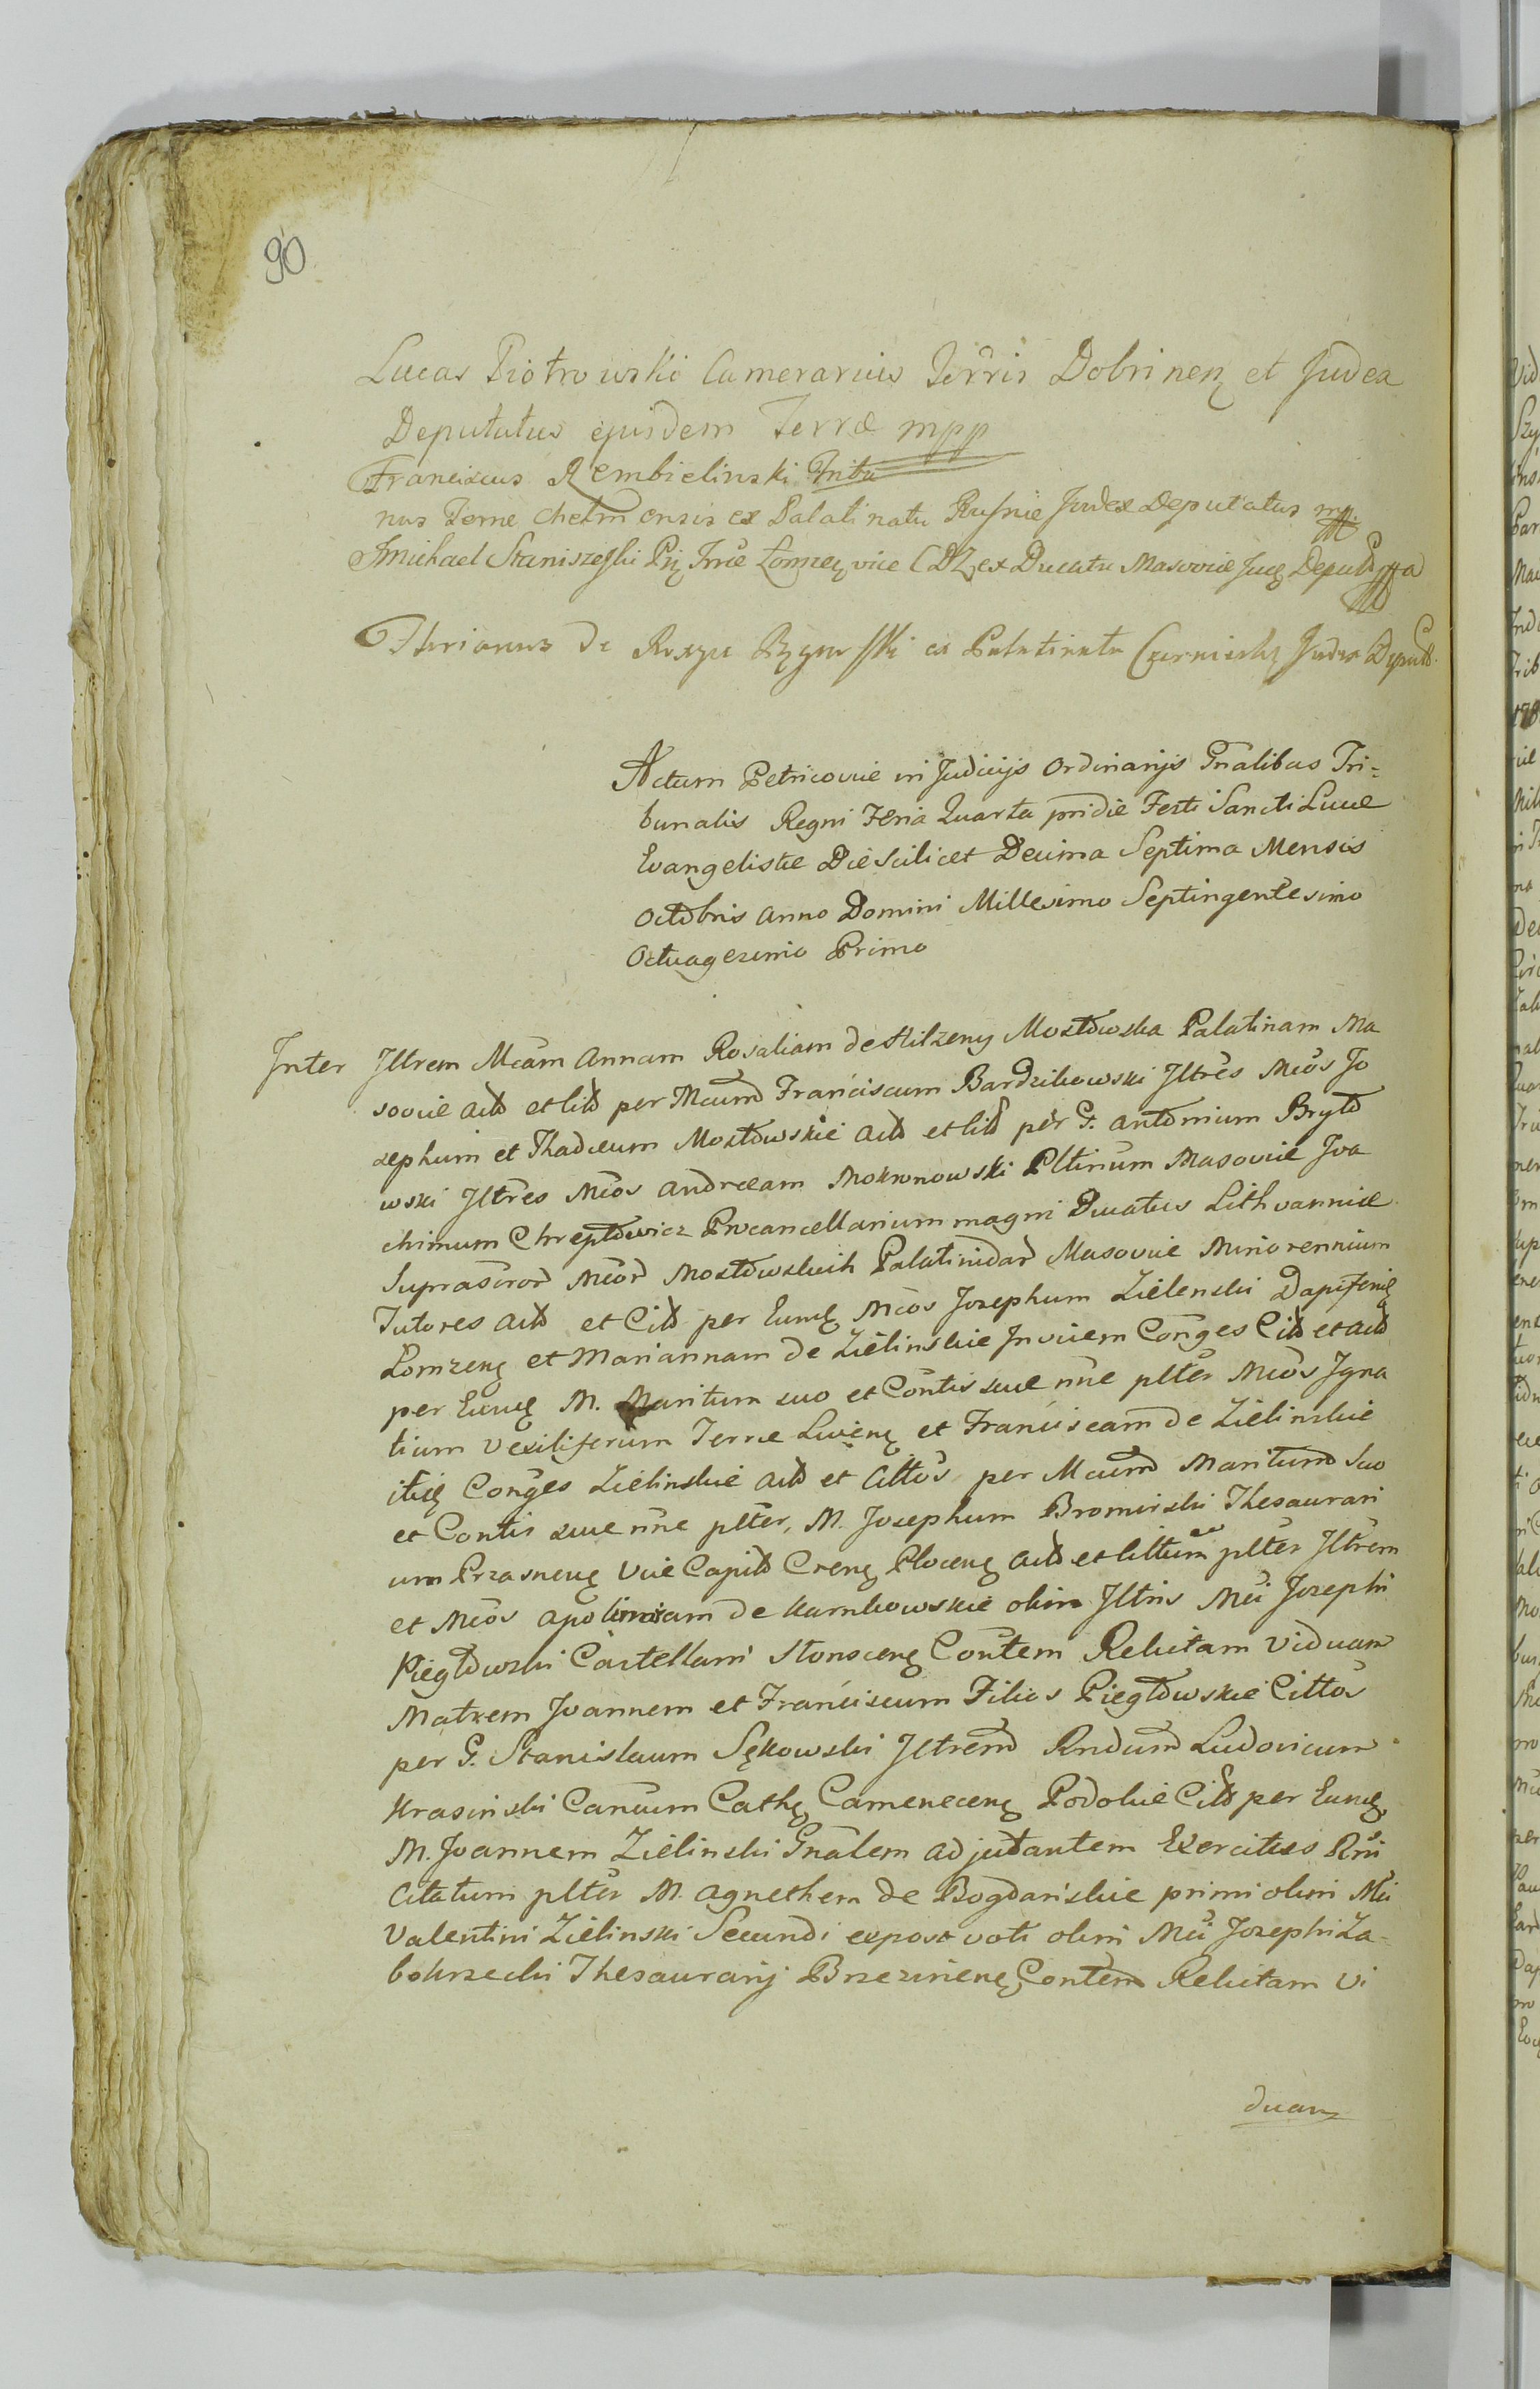 90
Lucas Piotrowski Camerarius Terris Dobrinen et Judex
Deputatus ejusdem Terræ mpp
Franciscus Rembielinski Tribu
nus Terræ Chelmensis ex Palatinatu Russiæ Judex Deputatus mp
Michael Staniszewski Trræ Lomzen vice ex Ducatu Masoviæ Jud Deput
de ex Palatinatu Czerniech Judex Deput
Actum Petricoviæ in Judicijs Ordinarijs Gnalibus Tri=
bunalis Regni Feria Quarta pridie Festi Sancti Lucæ
Evangelistæ Die Scilicet Decima Septima Mensis
Octobris Anno Domini Millesimo Septingentesimo
Octuagesimo Primo
Inter Jltrem Mcam Annam Rosaliam de Hilzeny Mostowska Palatinam Ma
soviæ actt et citt per Mcum Franciscum Bardzikowski Jltres Mcos Jo
zephum et Thadæum Mostowskie actt et citt per G. Antonium Bryto
wski Jltres Mcos Andræam Mokronowski Pltinum Masoviæ Joa
chimum Chreptowicz Procancellarium magni Ducatus Lithvanniæ
Suprascror Mcor Mostowskich Palatinidar Masoviæ Minorennium
Tutores actt et Citt per Eund Mcos Josephum Zielenski Dapiferu
Lomzen et Mariannam de Zielinskie Invicem Conges Citt et actt
per Eund M. Maritum suo et Contis suæ nne plter Mcos Igna
tium Vexiliferum Terræ Liven et Franciscam de Zielinskie
itid Conges Zielinskie actt et Cittos per Mcum Maritum Suo
et Contis suæ nne plter, M. Josephum Bromirski Thesaurari
um Przasnen Vice Capitt Cren Plocen actt et cittum plter Jltrem
et Mcos Apolinaram de Karnkowskie olim Jltris Mci Josephi
Pieglowski Castellani Slonscen Contem Relictam Viduam
Matrem Joannem et Franciscum Filios Pieglowskie Cittos
per G. Stanislaum Sękowski Jltrem Rndum Ludovicum
Krasinski Cancum Cath Camenecen Podoliæ Citt per Eund
M. Joannem Zielinski Gnalem adjutantem Exercitus Rni
Citatum plter M. Agnethem de Bogdanskie primi olim Mci
Valentini Zielinski Secundi expost voti olim Mci Josephi Za-
bokrzecki Thesaurarij Brzezinen Contem Relictam Vi
duam